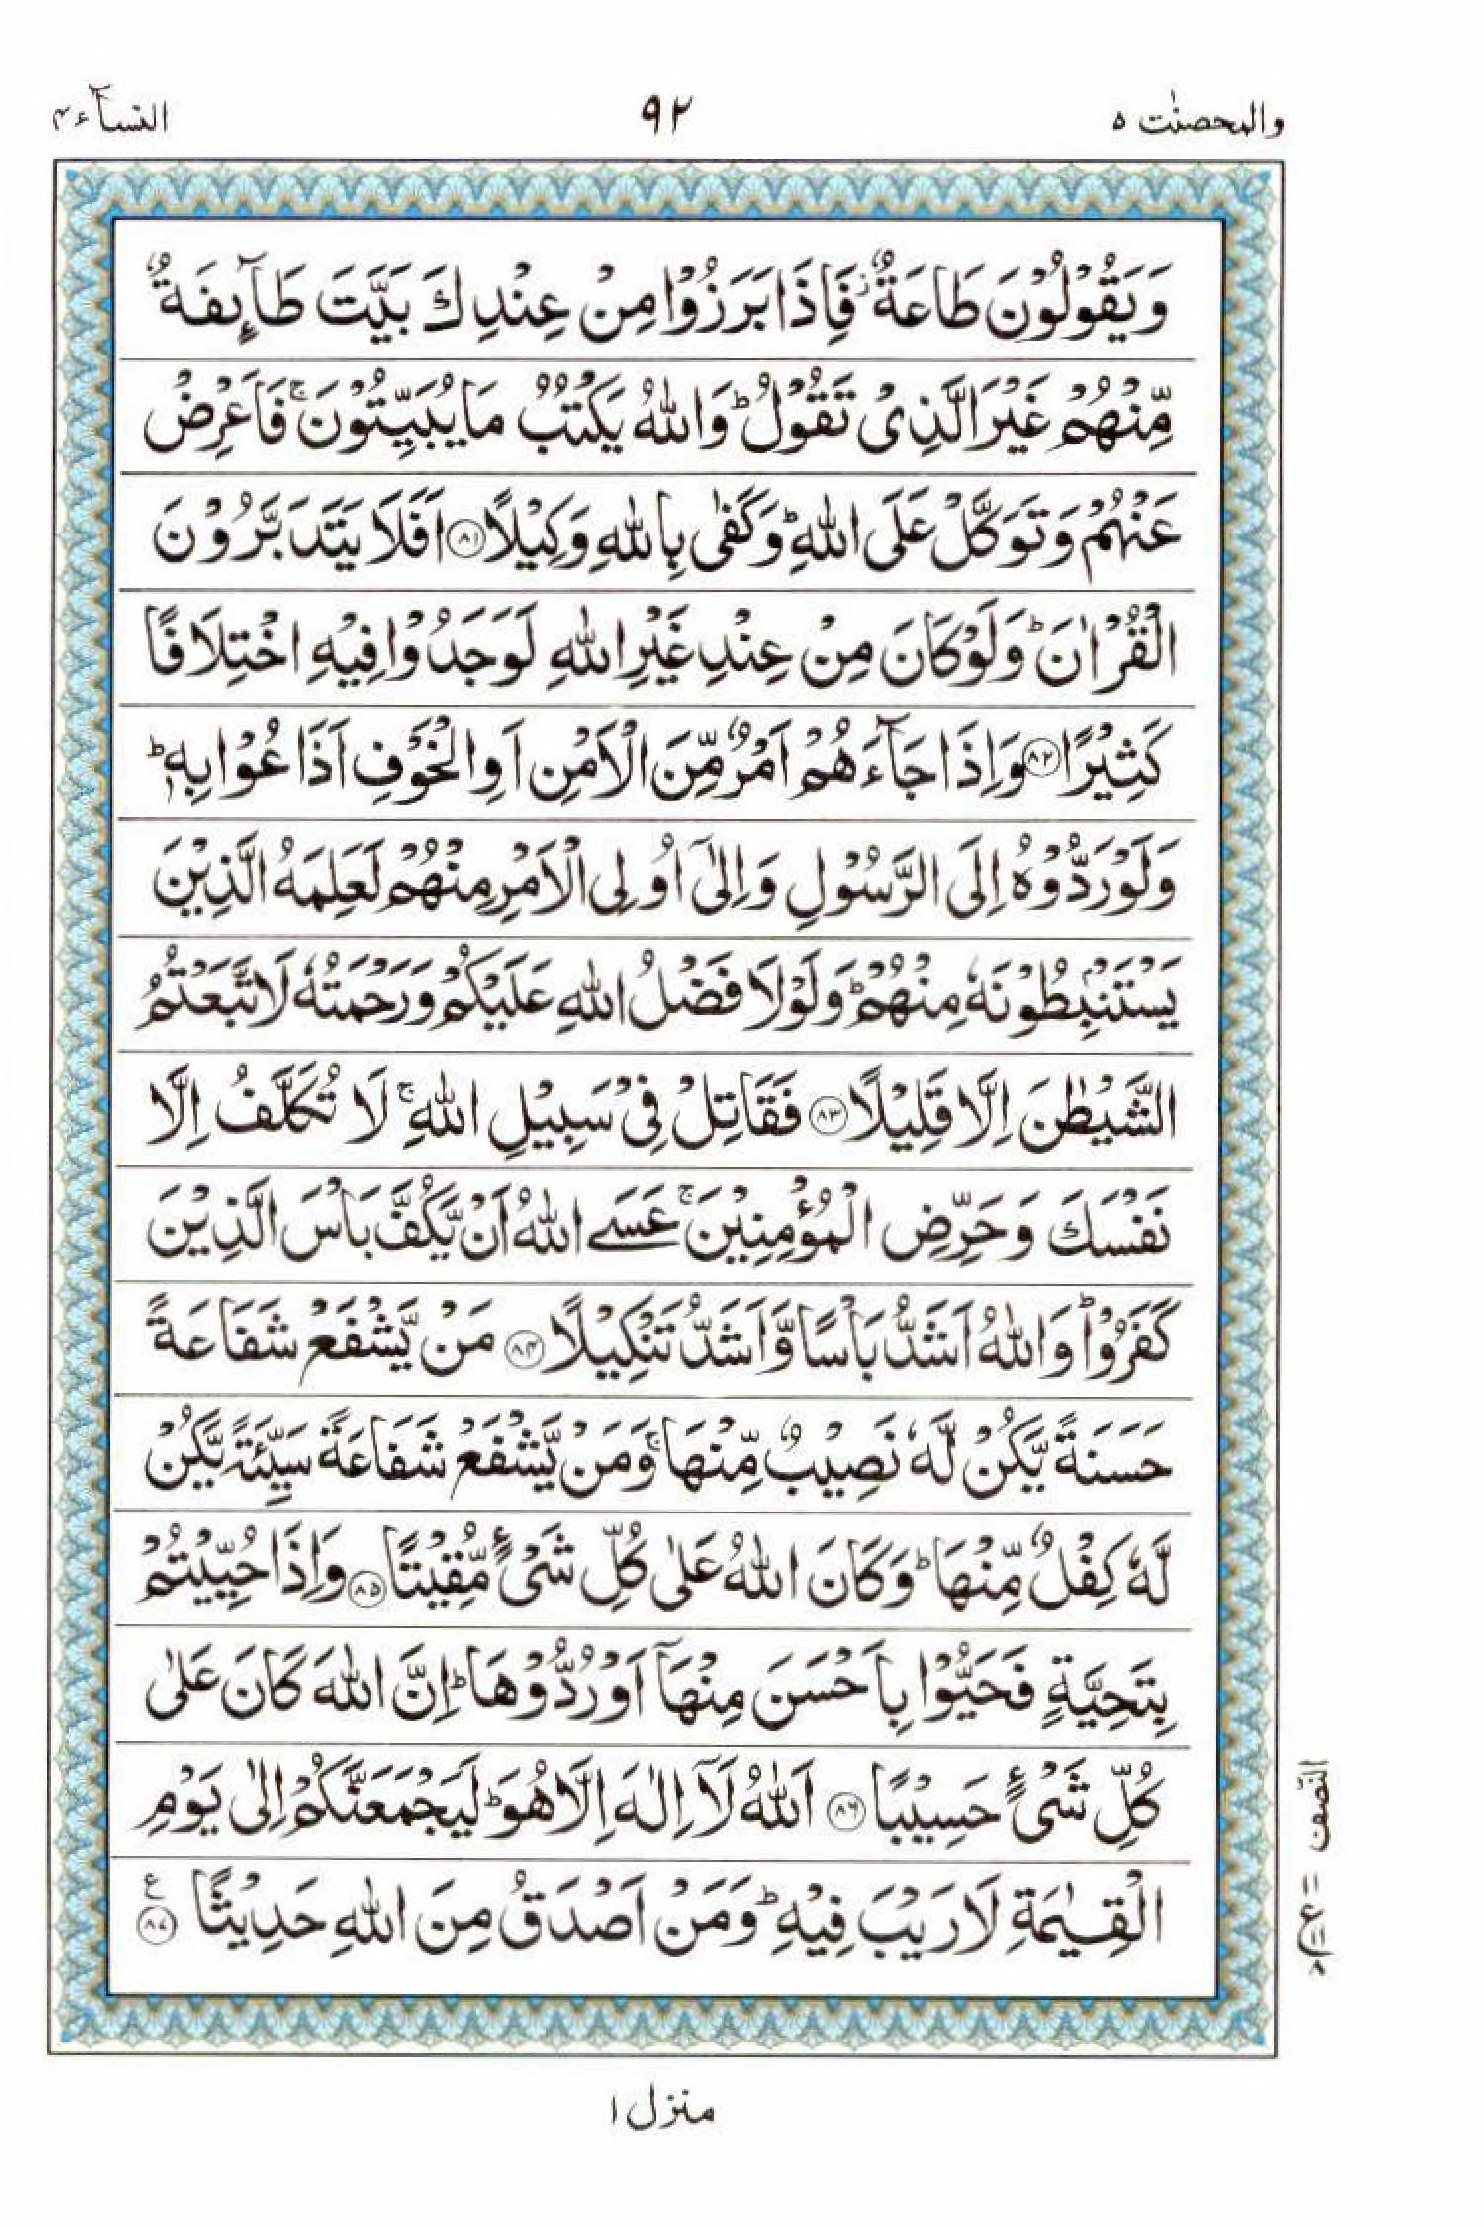 والمحصنٰت ٥
٩٢
النسآء ٤
وَيَقُوْلُوْنَ طَاعَةٌ ۫ فَاِذَا بَرَزُوْا مِنْ عِنْدِكَ بَيَّتَ طَآىِٕفَةٌ
مِّنْهُمْ غَيْرَ الَّذِىْ تَقُوْلُ ؕ وَاللّٰهُ يَكْتُبُ مَا يُبَيِّتُوْنَ ۚ فَاَعْرِضْ
عَنْهُمْ وَتَوَكَّلْ عَلَى اللّٰهِ ؕ وَكَفٰى بِاللّٰهِ وَكِيْلًا ﴿٨١﴾ اَفَلَا يَتَدَبَّرُوْنَ
الْقُرْاٰنَ ؕ وَلَوْ كَانَ مِنْ عِنْدِ غَيْرِ اللّٰهِ لَوَجَدُوْا فِيْهِ اخْتِلَافًا
كَثِيْرًا ﴿٨٢﴾ وَاِذَا جَآءَهُمْ اَمْرٌ مِّنَ الْاَمْنِ اَوِ الْخَوْفِ اَذَاعُوْا بِهٖ ؕ
وَلَوْ رَدُّوْهُ اِلَى الرَّسُوْلِ وَاِلٰٓى اُولِى الْاَمْرِ مِنْهُمْ لَعَلِمَهُ الَّذِيْنَ
يَسْتَنْۢبِطُوْنَهٗ مِنْهُمْ ؕ وَلَوْلَا فَضْلُ اللّٰهِ عَلَيْكُمْ وَرَحْمَتُهٗ لَاتَّبَعْتُمُ
الشَّيْطٰنَ اِلَّا قَلِيْلًا ﴿٨٣﴾ فَقَاتِلْ فِىْ سَبِيْلِ اللّٰهِ ۚ لَا تُكَلَّفُ اِلَّا
نَفْسَكَ وَحَرِّضِ الْمُؤْمِنِيْنَ ۚ عَسَے اللّٰهُ اَنْ يَّكُفَّ بَاْسَ الَّذِيْنَ
كَفَرُوْا ؕ وَاللّٰهُ اَشَدُّ بَاْسًا وَّاَشَدُّ تَنْكِيْلًا ﴿٨٤﴾ مَنْ يَّشْفَعْ شَفَاعَةً
حَسَنَةً يَّكُنْ لَّهٗ نَصِيْبٌ مِّنْهَا ۚ وَمَنْ يَّشْفَعْ شَفَاعَةً سَيِّئَةً يَّكُنْ
لَّهٗ كِفْلٌ مِّنْهَا ؕ وَكَانَ اللّٰهُ عَلٰى كُلِّ شَىْءٍ مُّقِيْتًا ﴿٨٥﴾ وَاِذَا حُيِّيْتُمْ
بِتَحِيَّةٍ فَحَيُّوْا بِاَحْسَنَ مِنْهَآ اَوْ رُدُّوْهَا ؕ اِنَّ اللّٰهَ كَانَ عَلٰى
كُلِّ شَىْءٍ حَسِيْبًا ﴿٨٦﴾ اَللّٰهُ لَآ اِلٰهَ اِلَّا هُوَ ؕ لَيَجْمَعَنَّكُمْ اِلٰى يَوْمِ
الْقِيٰمَةِ لَا رَيْبَ فِيْهِ ؕ وَمَنْ اَصْدَقُ مِنَ اللّٰهِ حَدِيْثًا ﴿٨٧﴾ ع
النّصف
١١ ع ١١ ٨
منزل ١